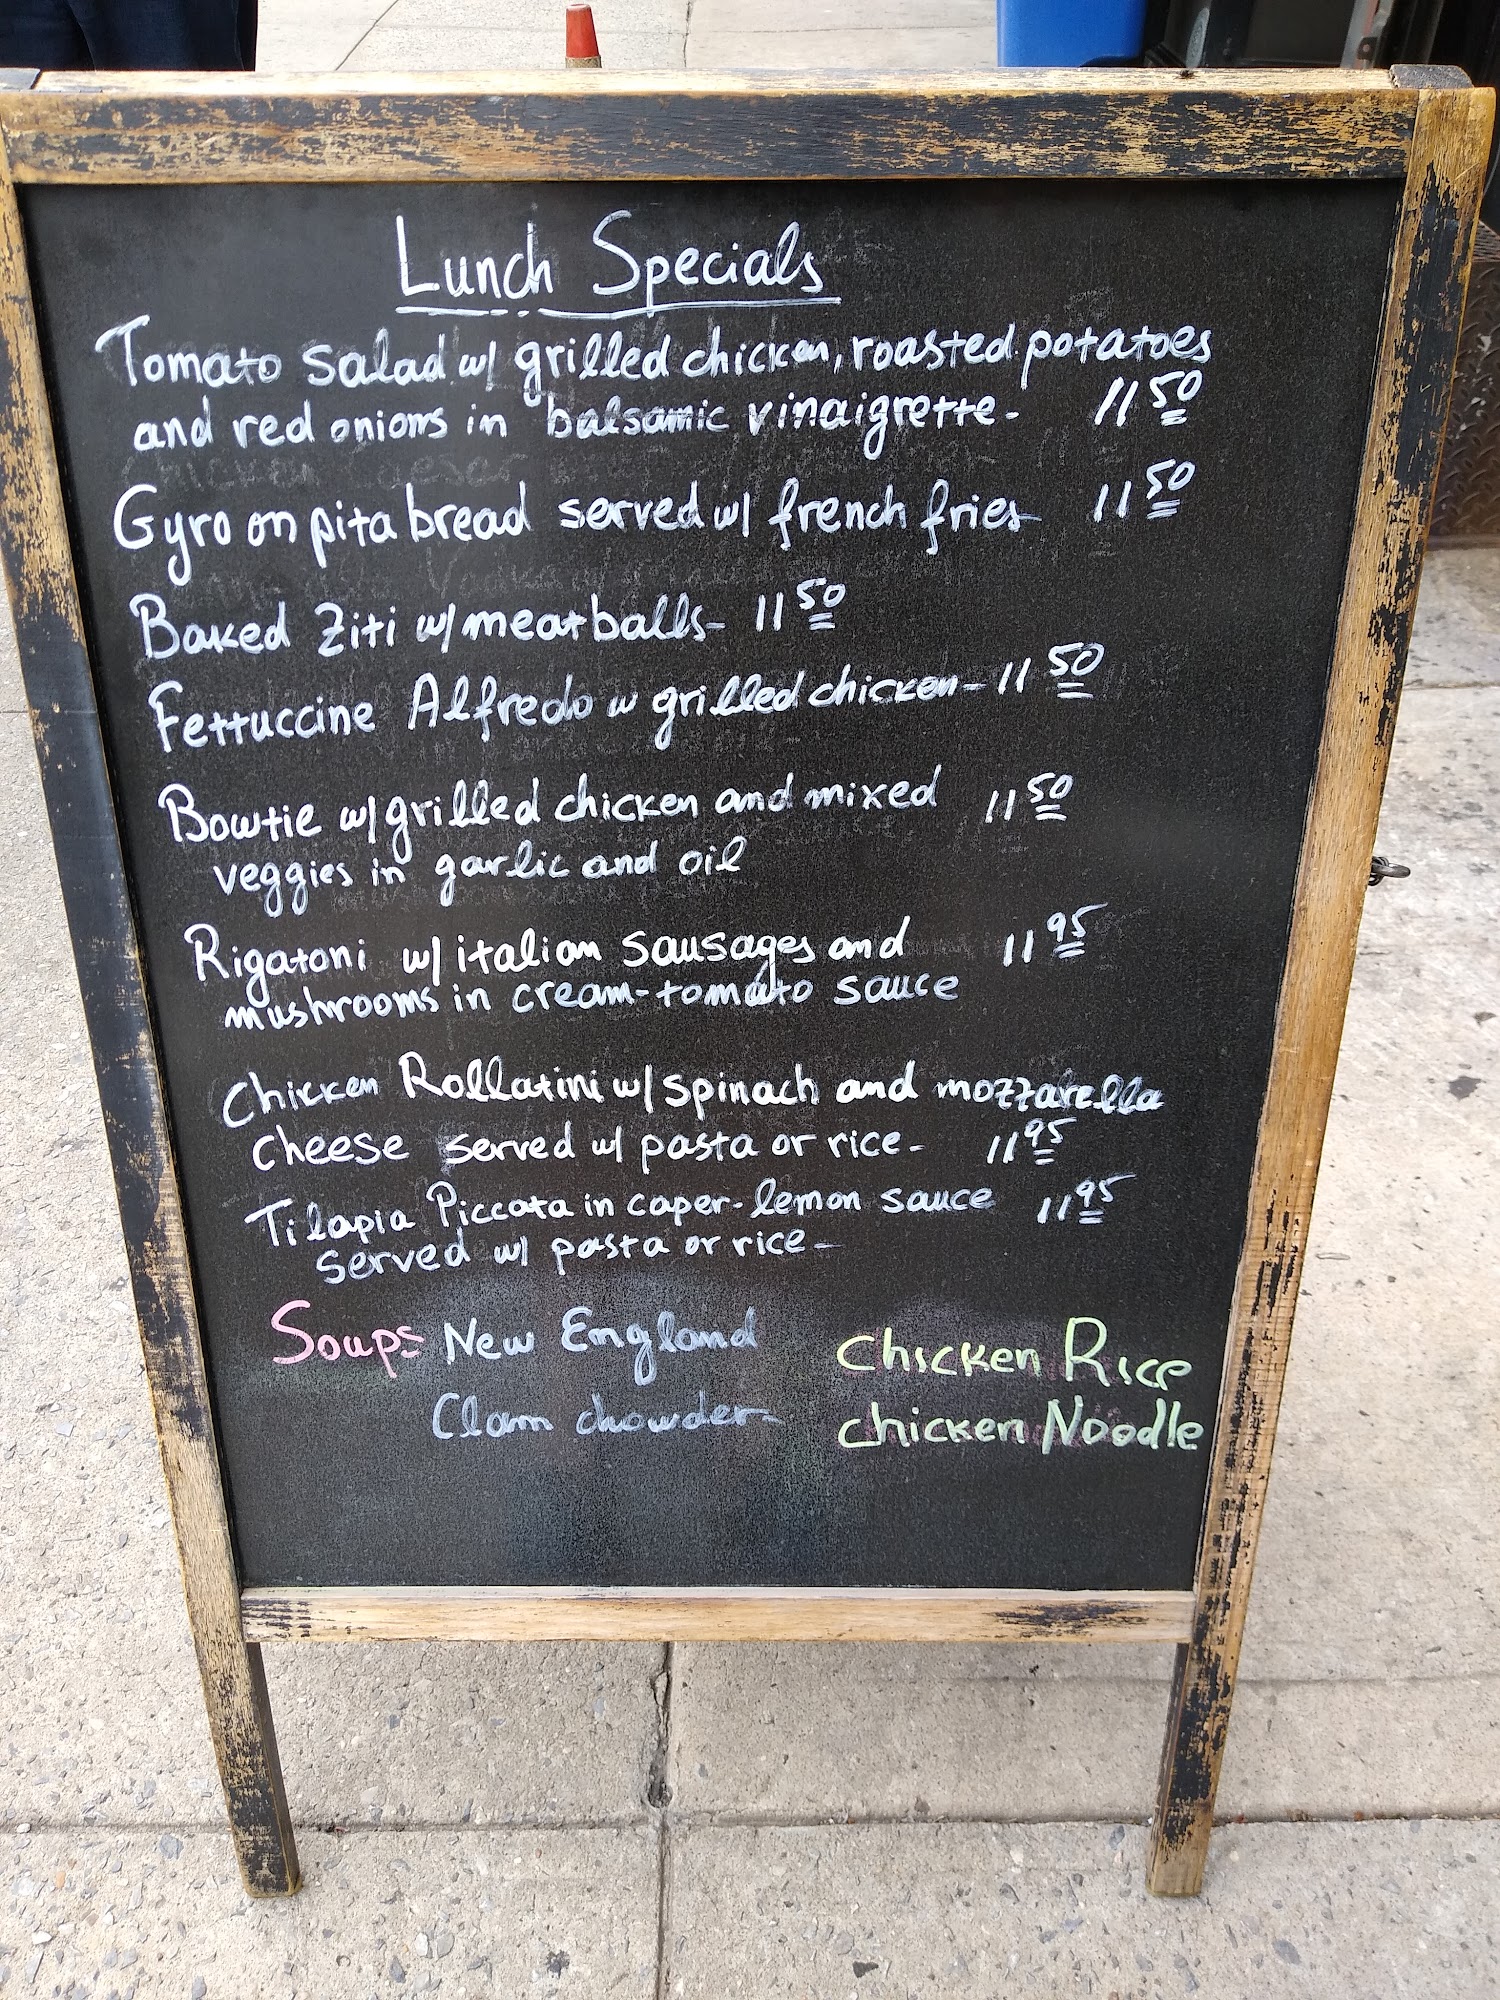 Lunch Specials
Tomato salad w/ grilled chicken, roasted potatoes
and red onions in balsamic vinaigrette- 11 50
Gyro on pita bread served w/ french fries 11 50
Baked Ziti w/ meatballs- 11 50
Fettuccine Alfredo w grilled chicken- 11 50
Bowtie w/ grilled chicken and mixed 11 50
veggies in garlic and oil
Rigatoni w/ italian sausages and 11 95
mushrooms in cream-tomato sauce
Chicken Rollatini w/ spinach and mozzarella
cheese served w/ pasta or rice- 11 95
Tilapia Piccata in caper-lemon sauce 11 95
served w/ pasta or rice-
Soups New England
Clam chowder
Chicken Rice
chicken Noodle